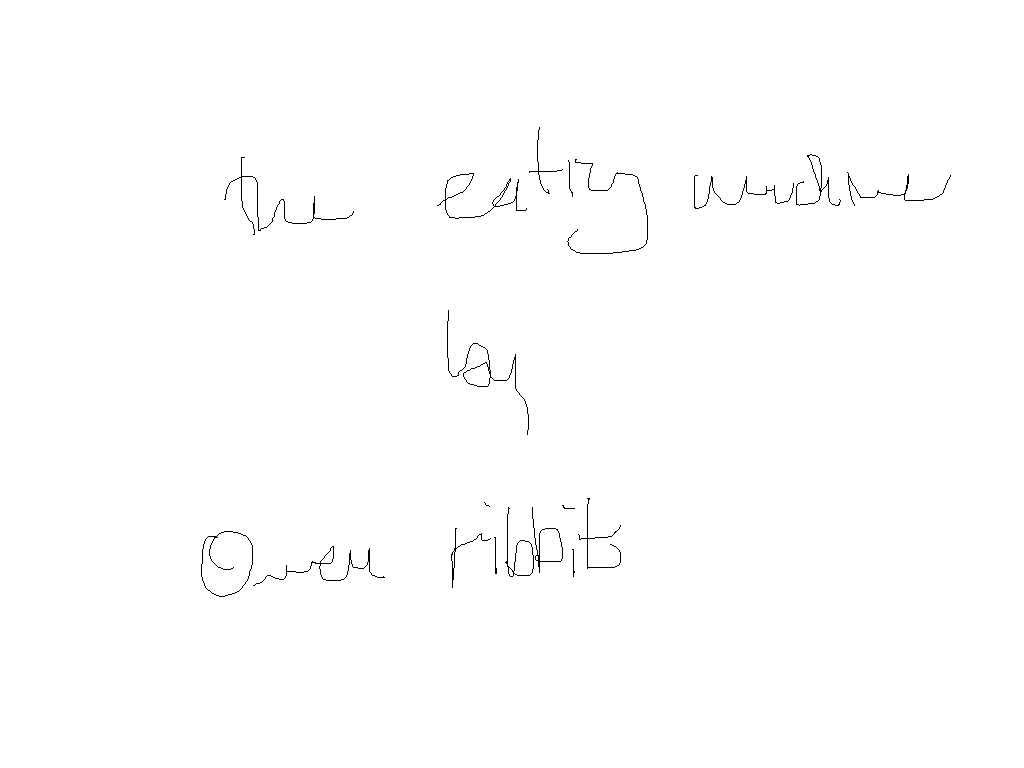 the eating machine
by
Owen ribbits